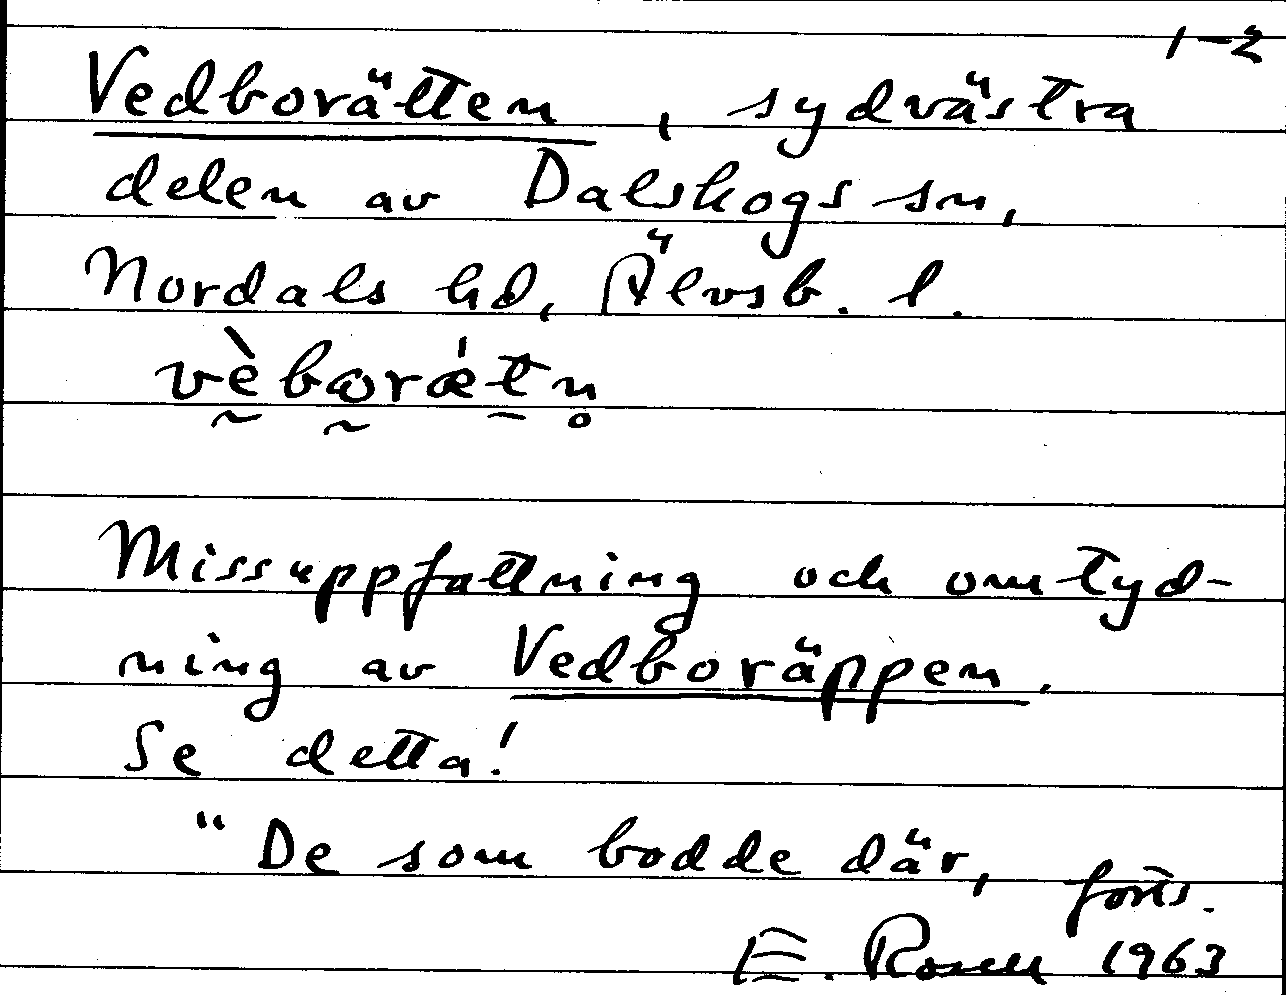 1-2
Vedborätten, sydvästra
delen av Dalskogs sn,
Nordals hd, Älvsb. l.
vḛ̀bω̰rǽt̠n̥
Missuppfattning och omtyd-
ning av Vedboräppen.
Se detta!
"De som bodde där,
forts.
E. Rosell 1963